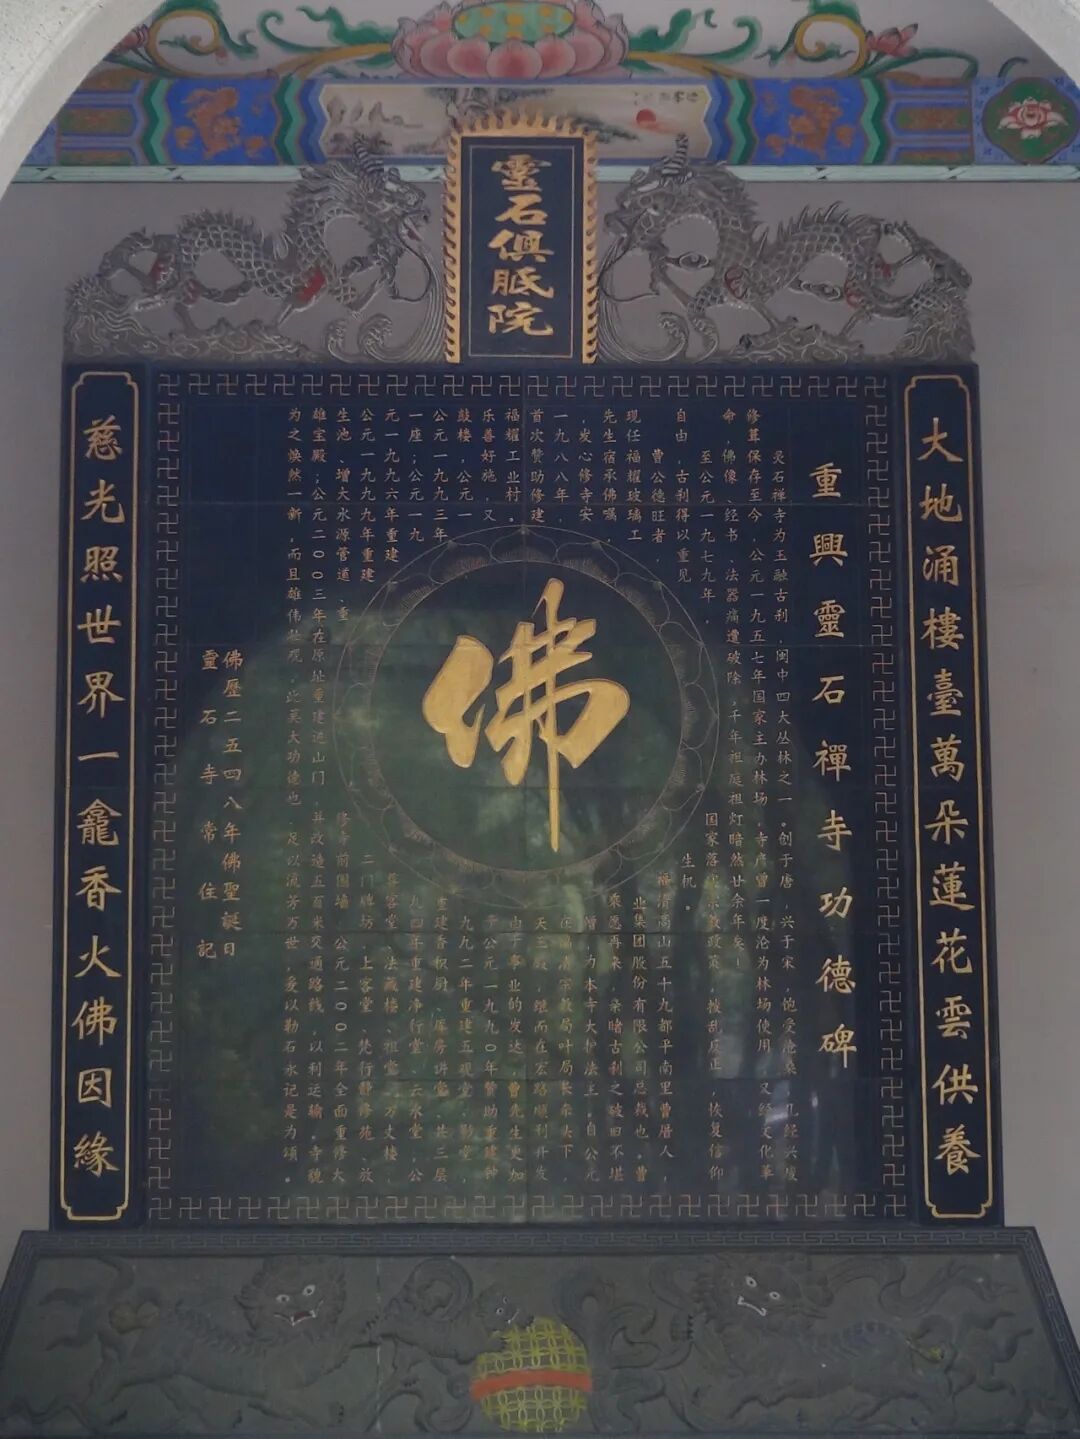 靈石俱胝院
大地涌樓臺萬朵蓮花雲供養
慈光照世界一龕香火佛因緣
重興靈石禪寺功德碑
灵石禅寺为玉融古刹，闽中四大丛林之一。创于唐，兴于宋，饱受沧桑，几经兴废
修葺保存至今，公元一九五七年国家主办林场，寺产曾一度沦为林场使用，又经文化革
命，佛像、经书、法器痛遭破除，千年祖庭祖灯暗然廿余年矣！
至公元一九七九年，国家落实宗教政策，拨乱反正，恢复信仰
自由，古刹得以重见生机。
曹公德旺者，福清高山五十九都平南里曹厝人，
现任福耀玻璃工业集团股份有限公司总裁也。曹
先生宿承佛嘱，乘愿再来，亲睹古刹之破旧不堪
，发心修寺安僧，为本寺大护法主，自公元
一九八八年，在福清宗教局叶局长牵头下，
首次赞助修建天王殿，继而在宏路顺利开发
福耀工业村。由于事业的发达，曹先生更加
乐善好施，又于公元一九九〇年赞助重建钟
鼓楼，公元一九九二年重建五观堂、影堂，
公元一九九三年重建香积厨、库房讲堂，共三层
一座；公元一九九四年重建净行堂、云水堂，公
元一九九六年重建客堂、法藏楼、祖堂、方丈楼，
公元一九九九年重建二门牌坊、上客堂、梵行静修苑、放
生池、增大水源管道、重修寺前围墙，公元二〇〇二年全面重修大
雄宝殿；公元二〇〇三年在原址重建迎山门，并改造五百米交通路线，以利运输。寺貌
为之焕然一新，而且雄伟壮观，此莫大功德也，足以流芳万世，爰以勒石永记是为颂。
佛
佛歷二五四八年佛聖誕日
靈石寺常住記